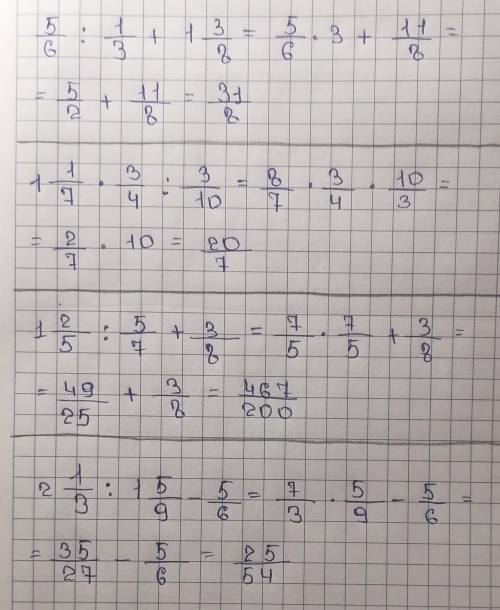 5/6 : 1/3 + 1 3/8 = 5/6 · 3 + 11/8 =
= 5/2 + 11/8 = 31/8
1 1/7 · 3/4 : 3/10 = 8/7 · 3/4 · 10/3 =
= 2/7 · 10 = 20/7
1 2/5 : 5/7 + 3/8 = 7/5 · 7/5 + 3/8 =
= 49/25 + 3/8 = 467/200
2 1/3 : 1 5/9 - 5/6 = 7/3 · 5/9 - 5/6 =
= 35/27 - 5/6 = 25/54